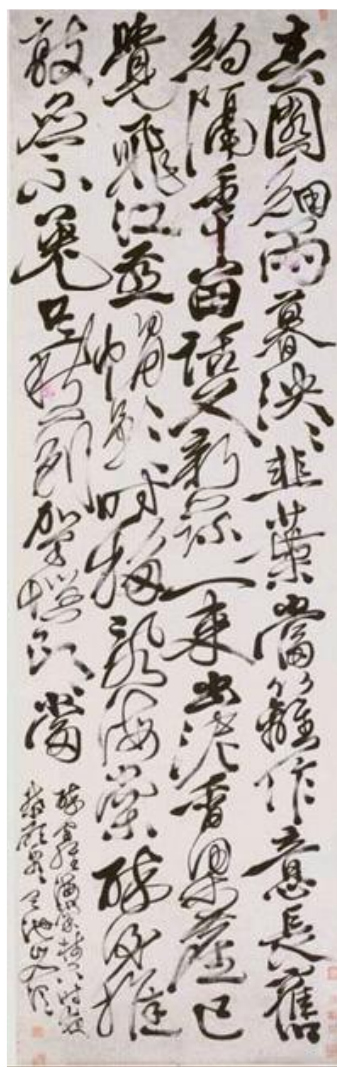 春園細雨暮泱泱韭葉當籬作意長舊
約隔年留話久新蔬一束出泥香梁塵已
覺飛江燕帽影時移亂海棠醉後推
敲應不免只愁別駕惱郎當
海棠樹下時夜
天池山人渭